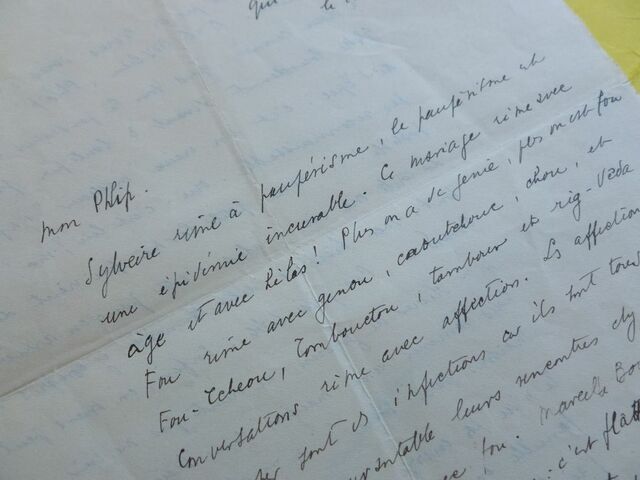 qui
le
mon Phlip.
Sylveire rime à paupérisme, le paupérisme est
une épidémie incurable. Ce mariage rime avec
âge et avec hélas! Plus on a de génie, plus on est fou
Fou rime avec genou, caoutchouc, chou, et
Fou-Tcheou, Tombouctou, tambour et rig-Veda
Conversations rime avec affection. Ls affection
sont ds infections car ils sont tous
leurs rencontres
fou. Marcelle
: c'est